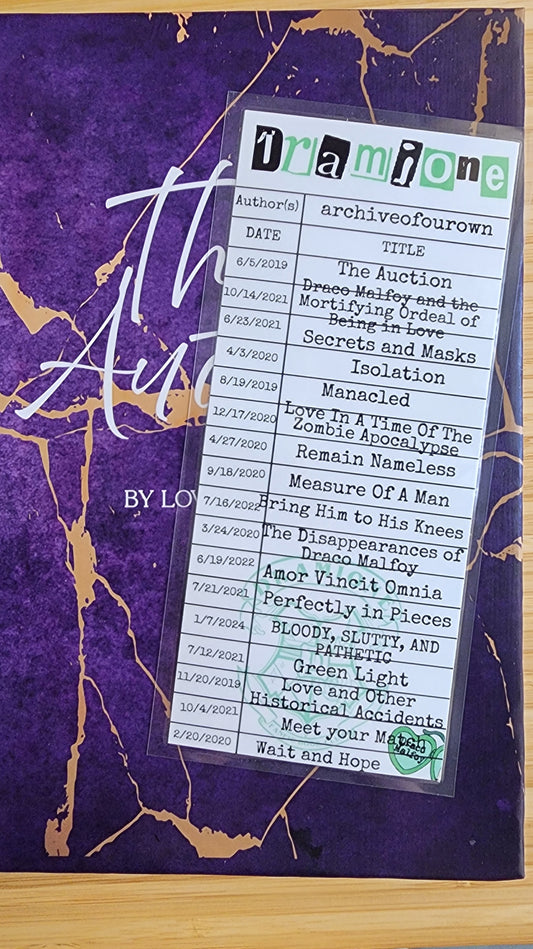 The
Auc
BY LOV
Dramione
Author(s) archiveofourown
DATE TITLE
6/5/2019 The Auction
10/14/2021 Draco Malfoy and the
Mortifying Ordeal of
Being in Love
6/23/2021 Secrets and Masks
4/3/2020 Isolation
8/19/2019 Manacled
12/17/2020 Love In A Time Of The
Zombie Apocalypse
4/27/2020 Remain Nameless
9/18/2020 Measure Of A Man
7/16/2022 Bring Him to His Knees
3/24/2020 The Disappearances of
Draco Malfoy
6/19/2022 Amor Vincit Omnia
7/21/2021 Perfectly in Pieces
1/7/2024 BLOODY, SLUTTY, AND
PATHETIC
7/12/2021 Green Light
11/20/2019 Love and Other
Historical Accidents
10/4/2021 Meet your Match
2/20/2020 Wait and Hope
Draco
Malfoy